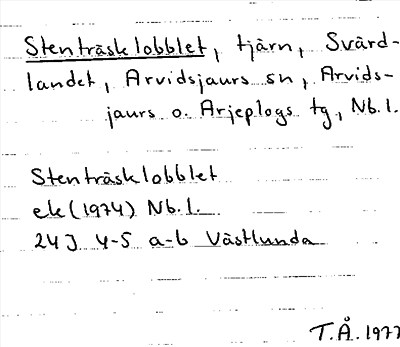 Stenträsklobblet, tjärn, Svärd-
landet, Arvidsjaurs sn, Arvids-
jaurs o. Arjeplogs tg, Nb. l.
Stenträsklobblet
ek (1974) Nb. l.
24J 4-5 a-b Västlunda
T.Å. 1977